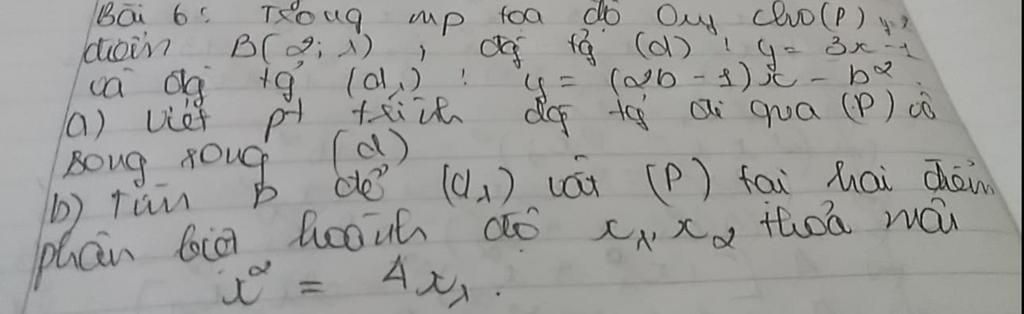 Bài 6: Trong mp tọa độ Oxy cho (P) y=
điểm B(2; 1), đg tg (d): y = 3x - 1
và đg tg (d₁): y = (2b - 1)x - b²
a) Viết pt trình đg tg đi qua (P) có
song song (d)
b) Tìm b để (d₁) cắt (P) tại hai điểm
phân biệt hoành độ x₁, x₂ thoả mãn
x² = 4x₁.